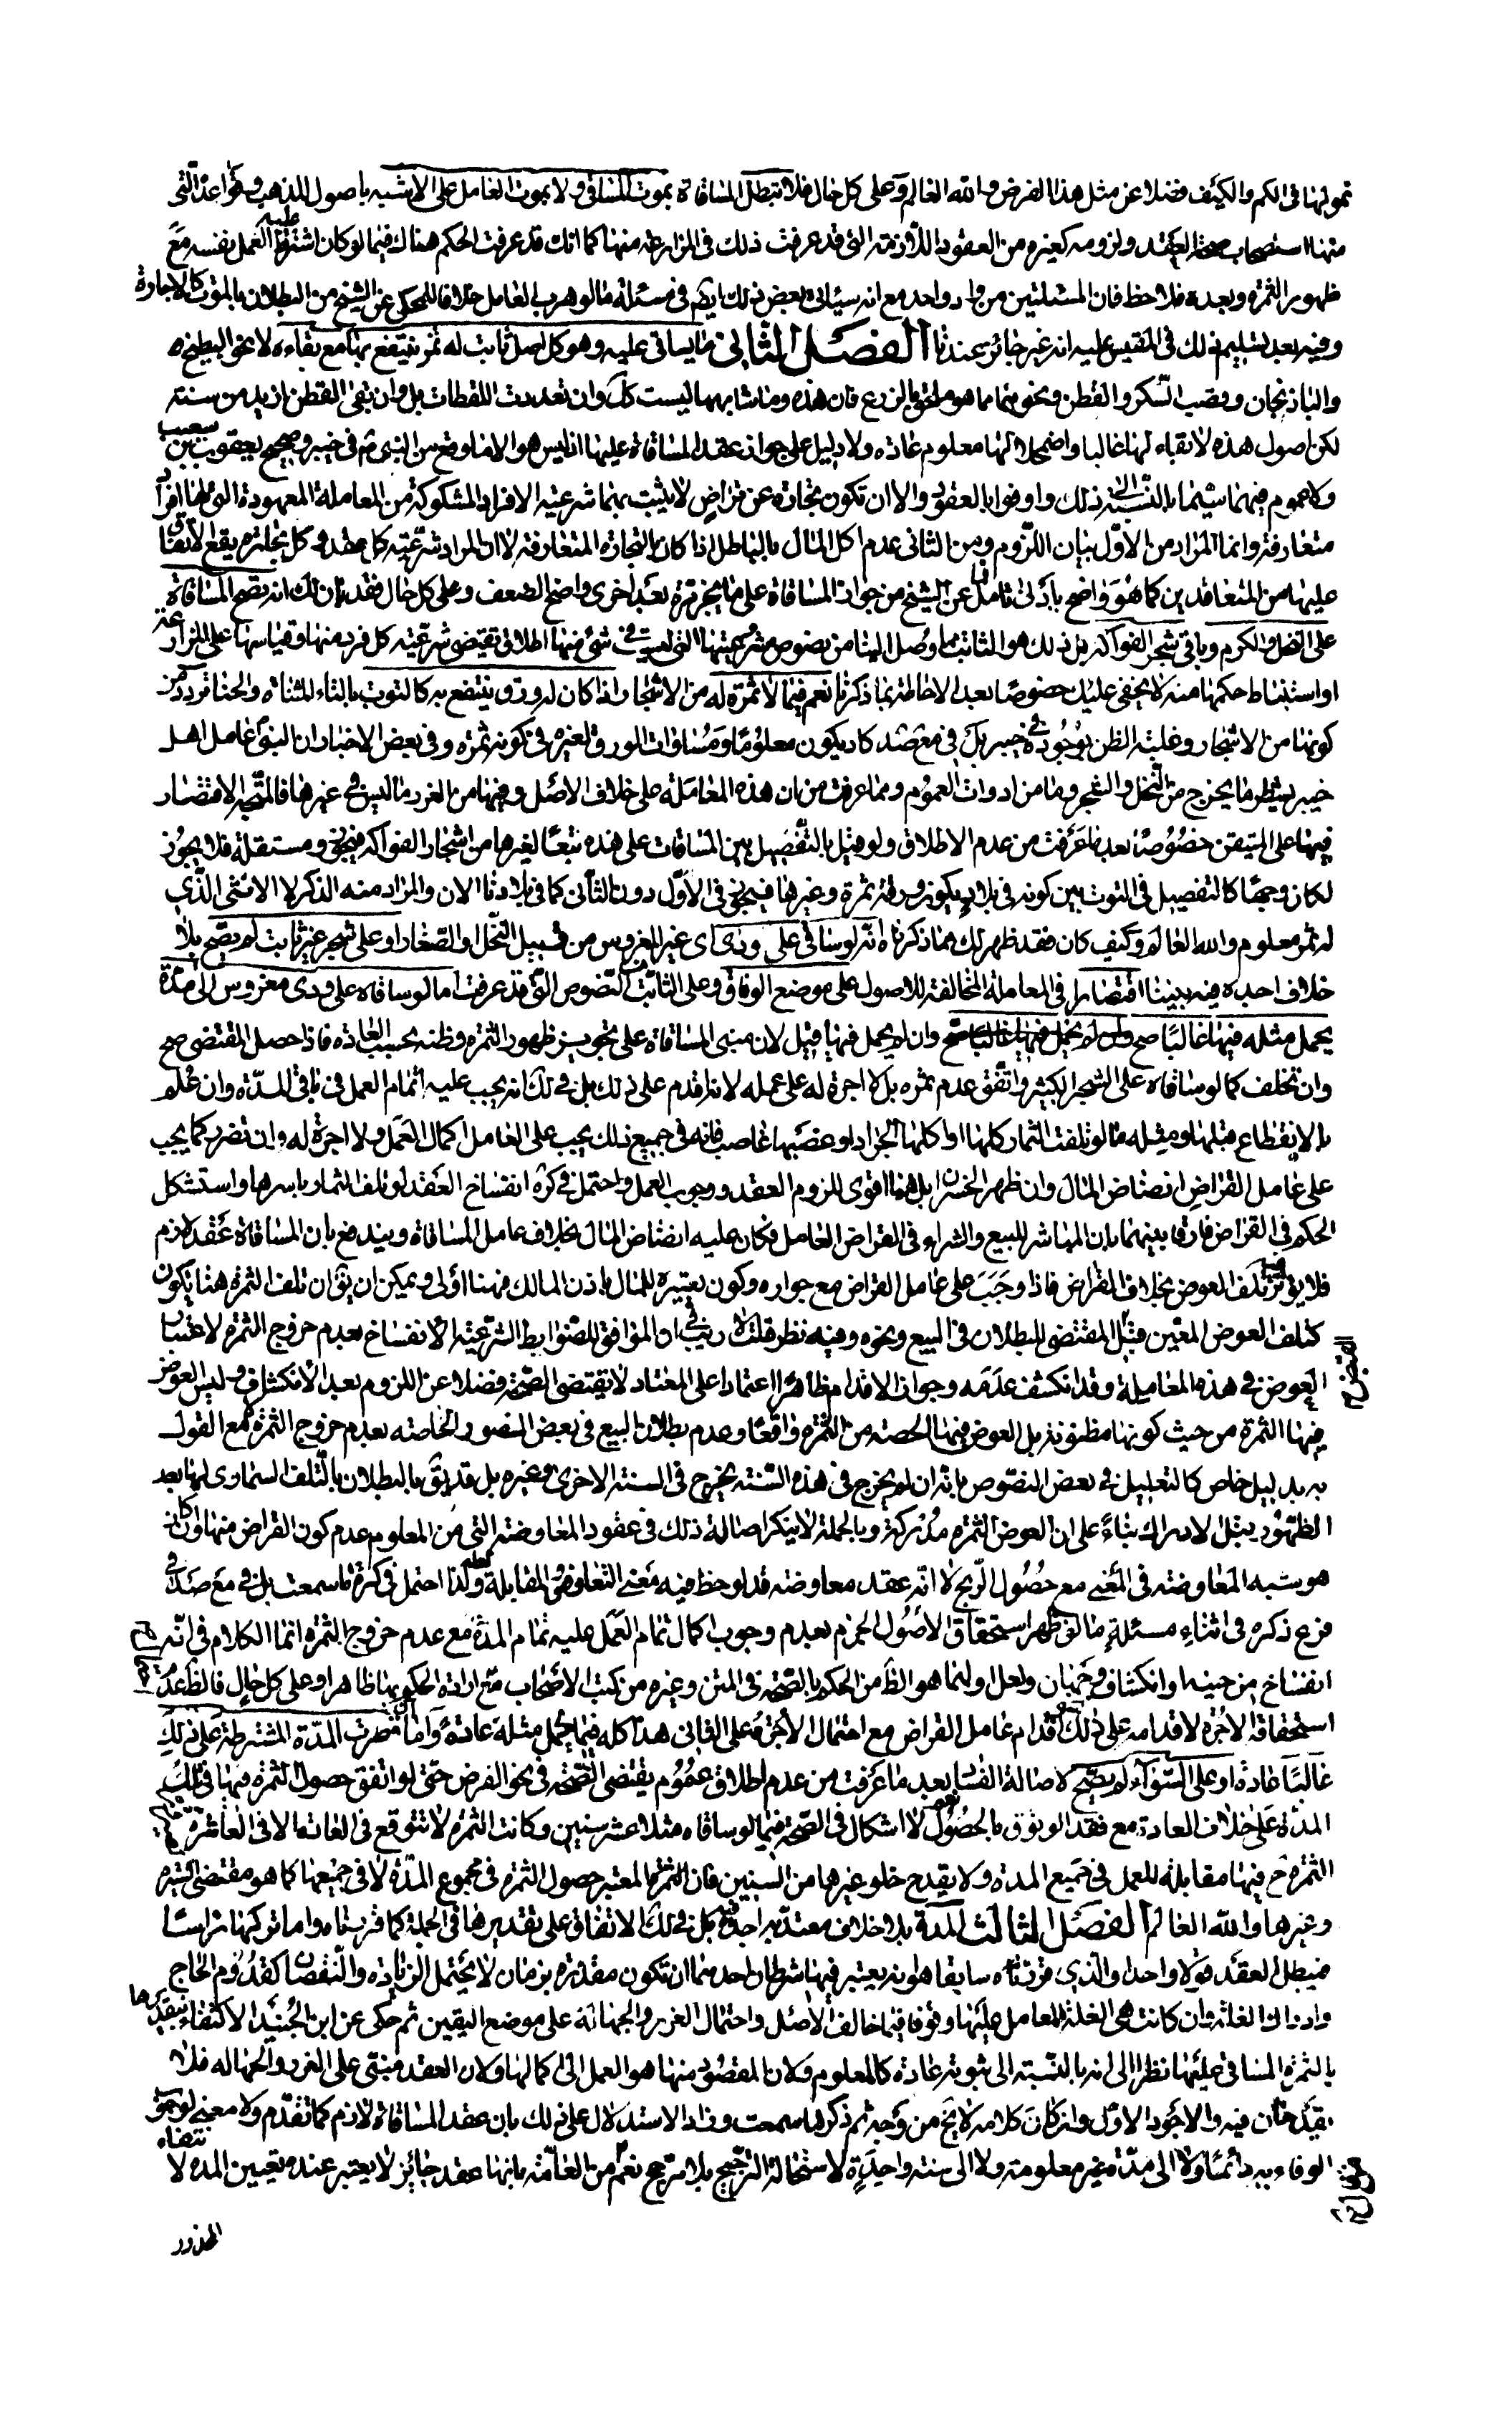 تمولها فى الكم والكيف فضلا عن مثل هذا الفرض والله العالم وعلى كل حال فلا تبطل المساقاة بموت المساقى ولا بموت العامل على الاشبه باصول المذهب وقواعده التى
منها استصحاب صحة العقد ولزومه كغيره من العقود اللازمة التى قد عرفت ذلك فى المزارعة منها كما انك قد عرفت الحكم هناك فيما لو كان اشترط عليه العمل بنفسه مع
ظهور الثمرة وبعده فلاحظ فان المسئلتين من واد واحد مع انه سيئاتى بعض ذلك ايضم فى مسئلة ما لو هرب العامل خلافا للمحكى عن الشيخ من البطلان بالموت كالاجارة
وفيه بعد تسليم ذلك فى المقيس عليه انه غير جائز عندنا الفصل الثانى ما يساقى عليه وهو كل اصل ثابت له ثمر ينتفع بها مع بقاءه لا نحو البطيخ
والباذنجان وقصب السكر والقطن ونحوهما مما هو ملحق بالزرع فان هذه وما شابهها ليست كك وان تعددت اللقطات بل وان بقى القطن ازيد من سنة
لكن اصول هذه لا بقاء لها غالبا واضمحلالها معلوم عادة ولا دليل على جواز عقد المساقاة عليها اذ ليس هو الا ما وقع من النبى ص فى خيبر وصحيح يعقوب بن شعيب
ولا عموم فيهما سيما بالنسبة الى ذلك واوفوا بالعقود والا ان تكون تجارة عن تراض لا يثبت بهما شرعية الافراد المشكوكة من المعاملة المعهودة التى لها افراد
متعارفة وانما المراد من الاول بيان اللزوم ومن الثانى عدم اكل المال بالباطل اذا كان بالتجارة المتعارفة لا ان المراد شرعية كل عقد وكل تجارة يقع الاتفاق
عليها من المتعاقدين كما هو واضح بادنى تامل فما عن الشيخ من جواز المساقاة على ما يجز مرة بعد اخرى واضح الضعف وعلى كل حال فقد بان لك انه تصح المساقاة
على النخل والكرم وباقى شجر الفواكه بل ذلك هو الثابت مما وصل الينا من نصوص مشروعيتها التى ليست فى شئ منها اطلاق يقتضى شرعية كل فرد منها وقياسها على المزارعة
او استنباط حكمها منه لا يخفى عليك خصوصا بعد الاحاطة بما ذكرنا نعم فيما لا ثمرة له من الاشجار اذا كان له ورق ينتفع به كالتوت بالتاء المثناة والحنا تردد من
كونها من الاشجار وغلبة الظن بوجوده فى خيبر بل فى معقد كاد يكون معلوما ومساوات الورق لغيره فى كونه ثمرة وفى بعض الاخبار ان النبى ص عامل اهل
خيبر بشطر ما يخرج من النخل والشجر وما من ادوات العموم ومما عرفت من ان هذه المعاملة على خلاف الاصل وفيها من الغرر ما ليس فى غيرها فالمتجه الاقتصار
فيها على المتيقن خصوصا بعد ما عرفت من عدم الاطلاق ولو قيل بالتفصيل بين المساقات على هذه تبعا لغيرها من اشجار الفواكه فيجوز ومستقلة فلا يجوز
لكان وجها كالتفصيل فى التوت بين كونه فى بلاد يكون ورقه ثمرة وغيرها فيجوز فى الاول دون الثانى كما فى بلادنا الان والمراد منه الذكر لا الانثى الذى
له ثمر معلوم والله العالم وكيف كان فقد ظهر لك مما ذكرناه انه لو ساقى على ودى اى غير المغروس من فسيل النخل او الصغار او على شجر غير ثابت لم يصح بلا
خلاف اجده فيه بيننا اقتصارا فى المعاملة المخالفة للاصول على موضع الوفاق وعلى الثابت من النصوص التى قد عرفت اما لو ساقاه على ودى مغروس الى مدة
يحمل مثله فيها غالبا صح وان لم يحمل فيها قيل لان مبنى المساقاة على تجويز ظهور الثمرة وظنه بحسب العادة فاذا حصل المقتضى صح
وان تخلف كما لو ساقاه على الشجر الكثير واتفق عدم ثمره بل لا اجرة له على عمله لانه اقدم على ذلك بل فى لك انه يجب عليه اتمام العمل فى باقى المدة وان علم
بالانقطاع قبلها ومثله ما لو تلفت الثمار كلها او اكلها الجراد او غصبها غاصب فانه فى جميع ذلك يجب على العامل اكمال العمل ولا اجرة له وان تضرر كما يجب
على عامل القراض انضاض المال وان ظهر الخسران بل هنا اقوى للزوم العقد ووجوب العمل واحتمل فى كره انفساخ العقد لو تلف الثمار باسرها واستشكل
الحكم فى القراض فارقا بينهما بان المباشر للبيع والشراء فى القراض العامل فكان عليه انضاض المال بخلاف عامل المساقاة ويندفع بان المساقاة عقد لازم
فلا يؤثر فيه تلف العوض بخلاف القراض فاذا وجب على عامل القراض مع جوازه وكون تغييره للمال باذن المالك فهنا اولى ويمكن ان يق ان تلف الثمرة هنا يكون
كتلف العوض المعين قبل القبض المقتضى للبطلان فى البيع ونحوه وفيه نظر قلت لا ريب فى ان الموافق للضوابط الشرعية الانفساخ بعدم خروج الثمرة لاعتبار
العوض فى هذه المعاملة وقد انكشف عدمه وجواز الاقدام ظاهرا اعتمادا على المعتاد لا يقتضى الصحة فضلا عن اللزوم بعد الانكشاف وليس العوض
فيها الثمرة من حيث كونها مظنونة بل العوض فيها الحصة من الثمرة واقعا وعدم بطلان البيع فى بعض الصور الخاصة بعدم خروج الثمرة مع القول
به بدليل خاص كالتعليل فى بعض النصوص بانه ان لم يخرج فى هذه السنة يخرج فى السنة الاخرى وغيره بل قد يق بالبطلان بالتلف السماوى لها بعد
الظهور قبل الادراك بناء على ان العوض الثمرة مدركة وبالجملة لا ينكر اصالة ذلك فى عقود المعاوضة التى من المعلوم عدم كون القراض منها وان كان
هو شبه المعاوضة فى المعنى مع حصول الربح لا انه عقد معاوضة قد لوحظ فيه معنى التعاوض والمقابلة ولعله لذا احتمل فى كرة ما سمعت بل فى مع صد فى
فرع ذكره فى اثناء مسئلة ما لو ظهر استحقاق الاصول الجزم بعدم وجوب اكمال تمام العمل عليه تمام المدة مع عدم خروج الثمرة انما الكلام فى انه
انفساخ من حينه او انكشاف وجهان ولعل اولهما هو الظ من الحكم بالصحة فى المتن وغيره من كتب الاصحاب مع ارادة الحكم بها ظاهرا وعلى كل حال فالظ عدم
استحقاقه الاجرة لاقدامه على ذلك اقدام عامل القراض مع احتمال الاجرة على الثانى هذا كله فيما يحمل مثله عادة واما ان قصرت المدة المشترطة على ذلك
غالبا عادة او على السواء لم يصح لاصالة الفساد بعد ما عرفت من عدم اطلاق وعموم يقتضى الصحة فى نحو الفرض حتى لو اتفق حصول الثمرة فيها فى تلك
المدة على خلاف العادة مع فقد الوثوق بالحصول نعم لا اشكال فى الصحة فيما لو ساقاه مثلا عشر سنين وكانت الثمرة لا تتوقع فى العادة الا فى العاشرة
الثمرة ح فيها مقابلة للعمل فى جميع المدة ولا يقدح خلو غيرها من السنين فان الثمرة المعتبر حصول الثمرة فى مجموع المدة لا فى جميعها كما هو مقتضى السيرة
وغيرها والله العالم الفصل الثالث المدة بلا خلاف معتد به اجده بل فى لك الاتفاق على تقديرها فى الجملة كما قررناه واما تركها راسا
فيبطل العقد قولا واحدا والذى قررناه سابقا هو يعتبر فيها شرطان احدهما ان تكون مقدرة بزمان لا يحتمل الزيادة والنقصان كقدوم الحاج
وادراك الغلة وان كانت هى الغلة المعامل عليها وقوفا فيما خالف الاصل واحتمال الغرر والجهالة على موضع اليقين ثم حكى عن ابن الجنيد الاكتفاء بتقديرها
بالثمرة المساقى عليها نظرا الى انه بالنسبة الى ثبوته عادة كالمعلوم ولان المقصود منها هو العمل الى كمالها ولان العقد مبنى على الغرر والجهالة فلا
يقدحان فيه والاجود الاول وان كان كلامه لا يخ من وجه ثم ذكر ما سمعت وزاد الاستدلال على ذلك بان عقد المساقاة لازم كما تقدم ولا معنى لوجوب
الوفاء به دائما ولا الى مدة غير معلومة ولا الى سنة واحدة لاستحالة الترجيح بلا مرجح نعم من العامة بانها عقد جائز لا يعتبر عنده تعيين المدة لا نتفاء
المحذور